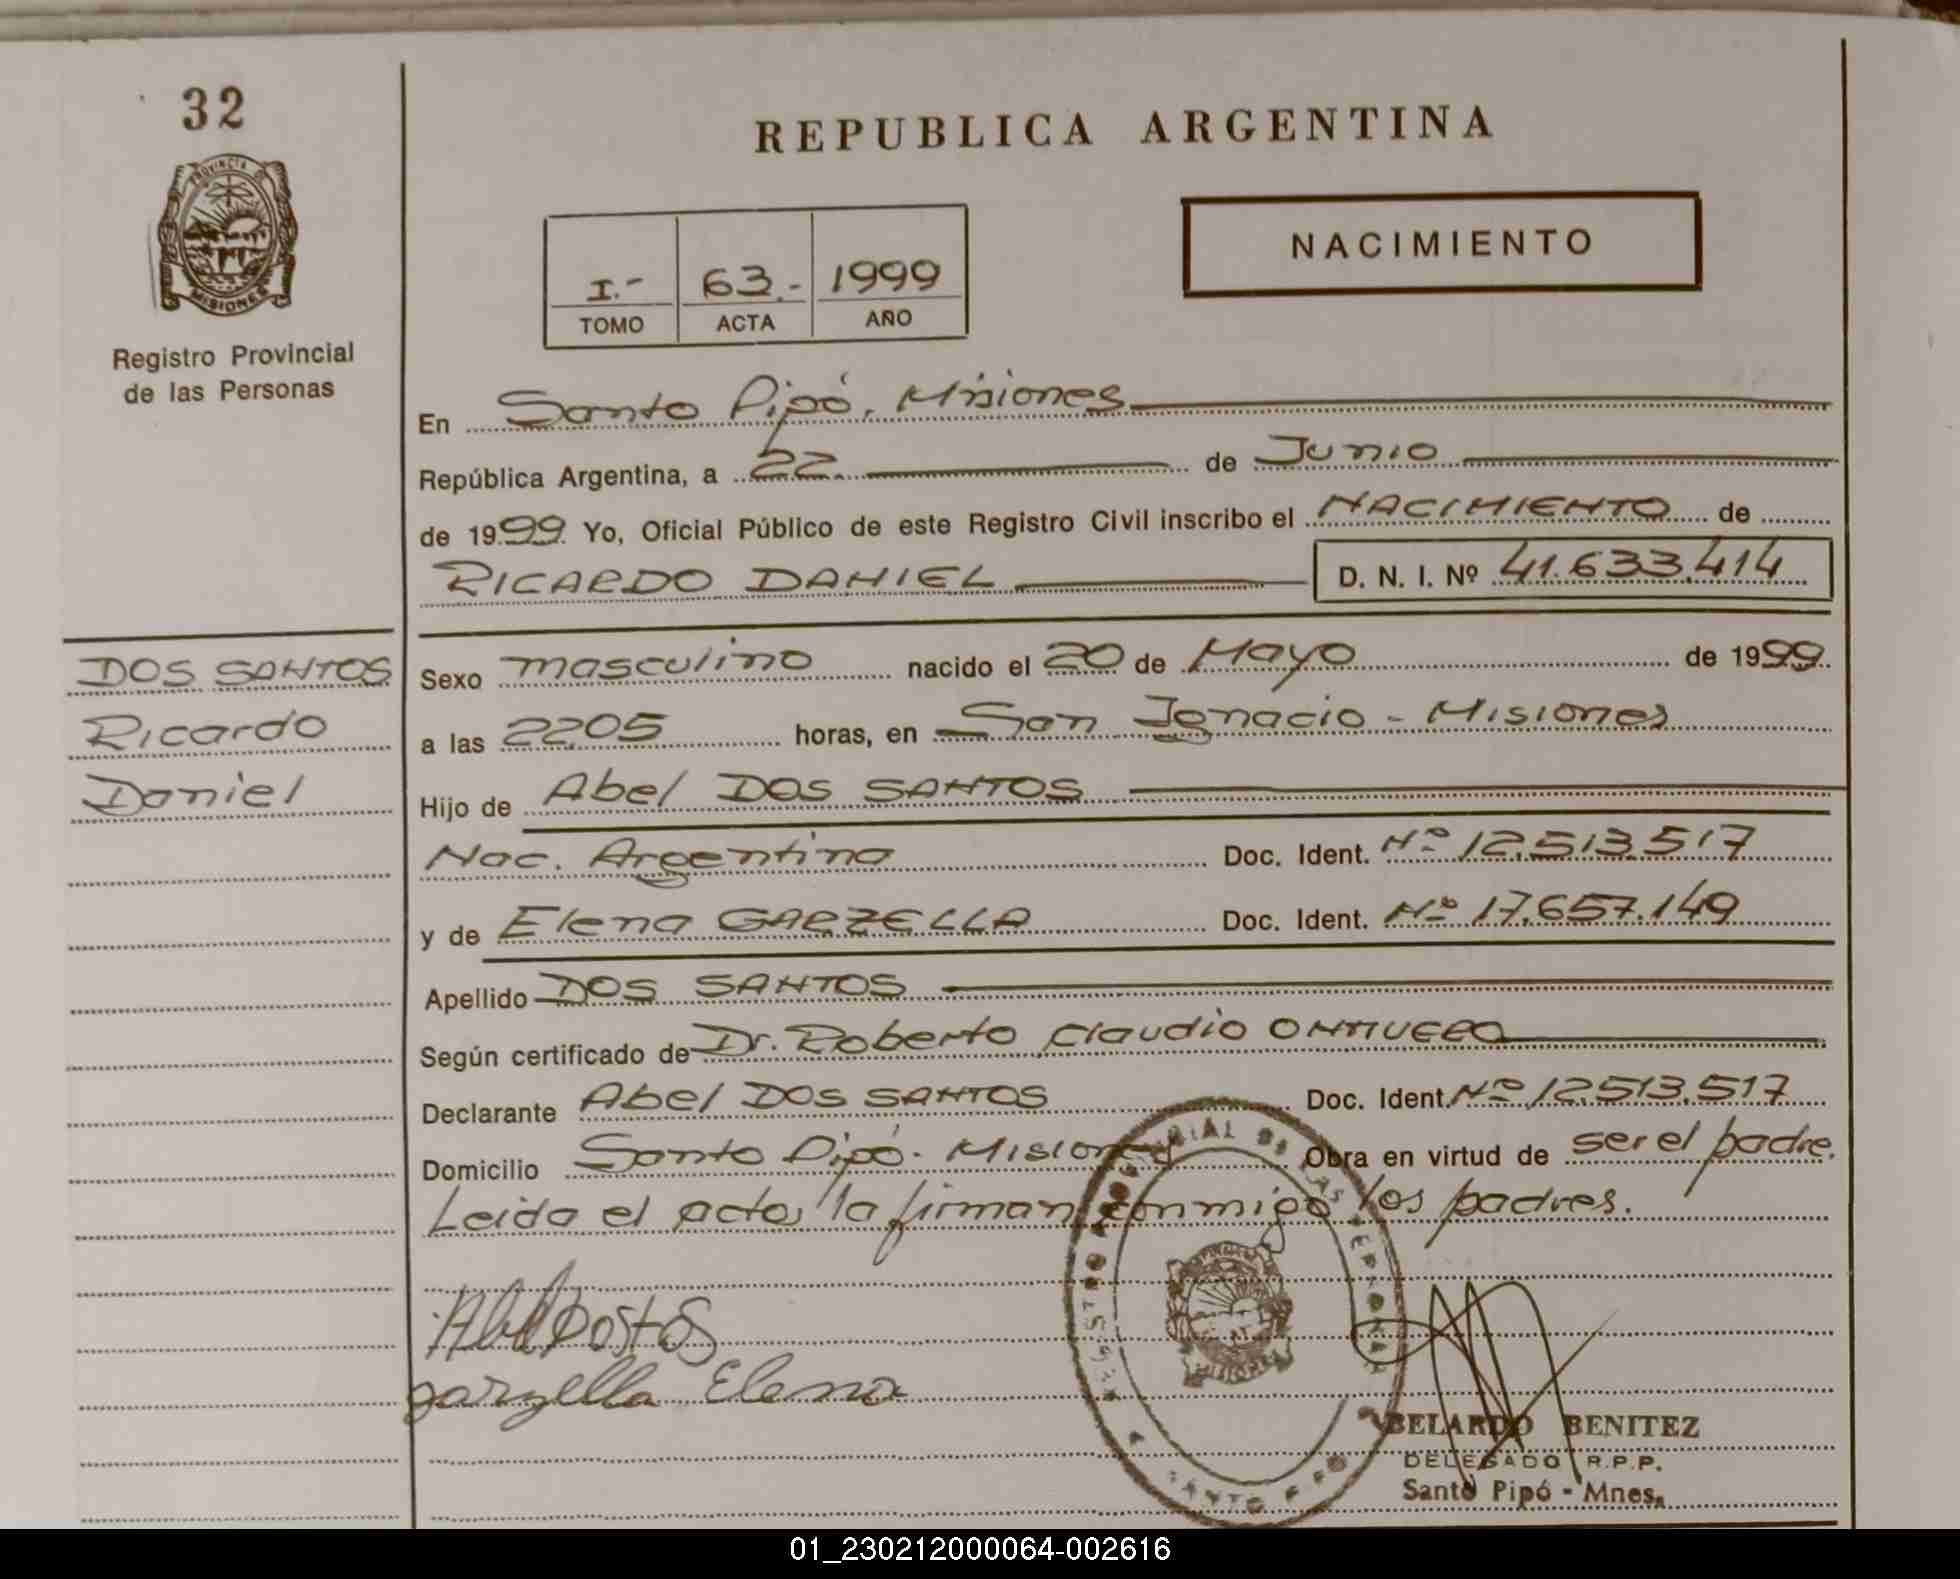 32
PROVINCIA DE
MISIONES
Registro Provincial
de las Personas
REPUBLICA ARGENTINA
NACIMIENTO
I.- 63.- 1999
TOMO ACTA AÑO
En Santo Pipó, Misiones
República Argentina, a 22 de Junio
de 1999 Yo, Oficial Público de este Registro Civil inscribo el NACIMIENTO de
RICARDO DANIEL D. N. I. Nº 41.633.414
DOS SANTOS
Ricardo
Daniel
Sexo masculino nacido el 20 de Mayo de 1999
a las 22,05 horas, en San Ignacio - Misiones
Hijo de Abel DOS SANTOS
Nac. Argentina Doc. Ident. Nº 12.513.517
y de Elena GARZELLA Doc. Ident. Nº 17.657.149
Apellido DOS SANTOS
Según certificado de Dr. Roberto Claudio ONTIVERO
Declarante Abel DOS SANTOS Doc. Ident. Nº 12.513.517
Domicilio Santo Pipó. Misiones Obra en virtud de ser el padre.
Leida el acta, la firman conmigo los padres.
garzella Elena
BELARDO BENITEZ
DELEGADO R.P.P.
Santo Pipó - Mnes.
01_230212000064-002616